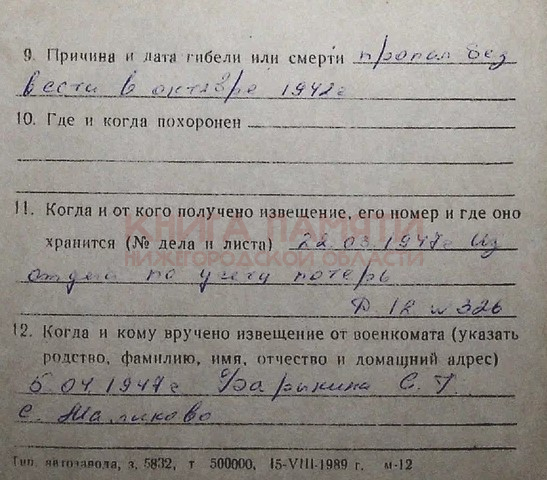 9. Причина и дата гибели или смерти пропал без
вести в октябре 1942 г
10. Где и когда похоронен
11. Когда и от кого получено извещение, его номер и где оно
КНИГА ПАМЯТИ
хранится (№ дела и листа) 22.03.1947г Из
НИЖЕГОРОДСКОЙ ОБЛАСТИ
отдела по учету потерь
Д. 12 л 326
12. Когда и кому вручено извещение от военкомата (указать
родство, фамилию, имя, отчество и домашний адрес)
5.04.1947г С. Г.
с. Маликово
Тип. автозавода, з. 5832, т 500000, 15-VIII-1989 г. м-12